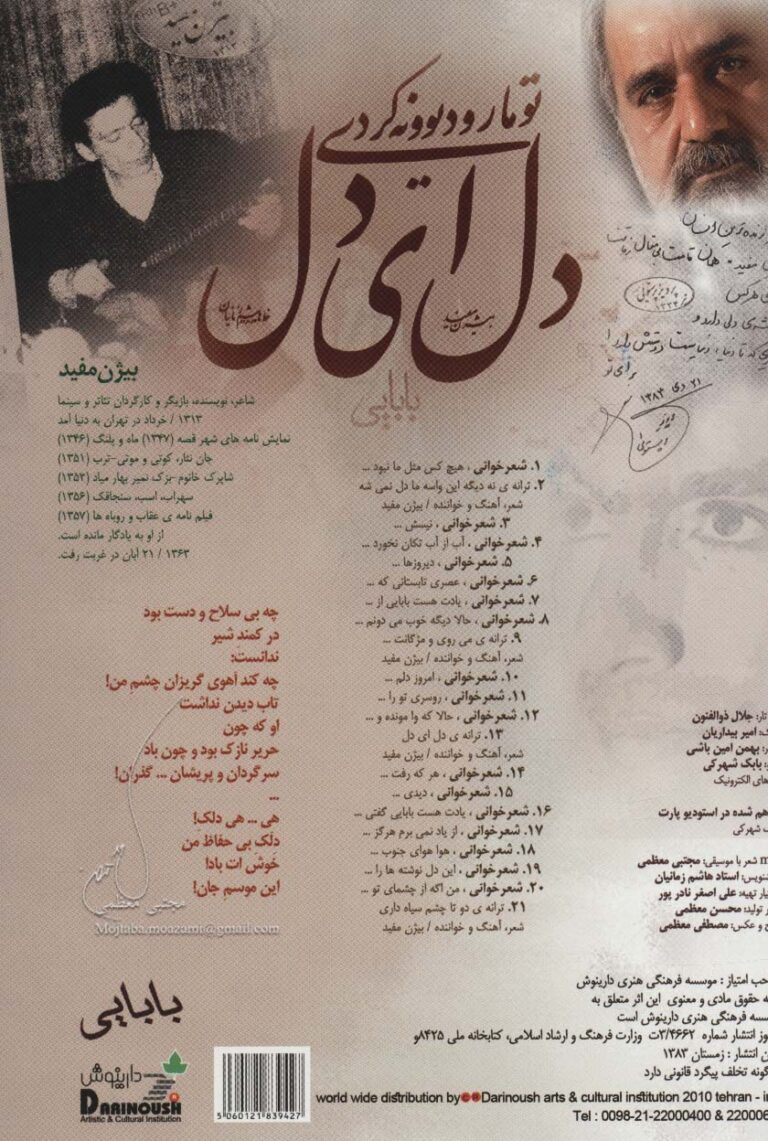 بیژن مفید
۱۳۱۳
تو ما رو دیوونه کردی
دل ای دل
بابایی
۲۱ دی ۱۳۸۳
بیژن مفید
شاعر، نویسنده، بازیگر و کارگردان تئاتر و سینما
۱۳۱۳ / خرداد در تهران به دنیا آمد
نمایش نامه های شهر قصه (۱۳۴۷) ماه و پلنگ (۱۳۴۶)
جان نثار، کوتی و موتی-ترب (۱۳۵۱)
شاپرک خانوم-بزک نمیر بهار میاد (۱۳۵۲)
سهراب، اسب، سنجاقک (۱۳۵۶)
فیلم نامه ی عقاب و روباه ها (۱۳۵۷)
از او به یادگار مانده است.
۱۳۶۳ / ۲۱ آبان در غربت رفت.
چه بی سلاح و دست بود
در کمند شیر
ندانست:
چه کند آهوی گریزان چشم من!
تاب دیدن نداشت
او که چون
حریر نازک بود و چون باد
سرگردان و پریشان ... گذران!
...
هی ... هی دلک!
دلک بی حفاظ من
خوش ات بادا!
این موسم جان!
مجتبی معظمی
Mojtaba.moazami@gmail.com
۱. شعرخوانی ، هیچ کس مثل ما نبود ...
۲. ترانه ی نه دیگه این واسه ما دل نمی شه
شعر، آهنگ و خواننده / بیژن مفید
۳. شعرخوانی ، نیستش ...
۴. شعرخوانی ، آب از آب تکان نخورد ...
۵. شعرخوانی ، دیروزها ...
۶. شعرخوانی ، عصری تابستانی که ...
۷. شعرخوانی ، یادت هست بابایی از ...
۸. شعرخوانی ، حالا دیگه خوب می دونم ...
۹. ترانه ی می روی و مژگانت ...
شعر، آهنگ و خواننده / بیژن مفید
۱۰. شعرخوانی ، امروز دلم ...
۱۱. شعرخوانی ، روسری تو را ...
۱۲. شعرخوانی ، حالا که وا مونده و ...
۱۳. ترانه ی دل ای دل
شعر، آهنگ و خواننده / بیژن مفید
۱۴. شعرخوانی ، هر که رفت ...
۱۵. شعرخوانی ، دیدی ...
۱۶. شعرخوانی ، یادت هست بابایی گفتی ...
۱۷. شعرخوانی ، از یاد نمی برم هرگز ...
۱۸. شعرخوانی ، هوا هوای جنوب ...
۱۹. شعرخوانی ، این دل نوشته ها را ...
۲۰. شعرخوانی ، من اگه از چشمای تو ...
۲۱. ترانه ی دو تا چشم سیاه داری
شعر، آهنگ و خواننده / بیژن مفید
تار: جلال ذوالفنون
امیر بیداریان
بهمن امین باشی
بابک شهرکی
های الکترونیک
هم شده در استودیو پارت
شهرکی
شعر با موسیقی: مجتبی معظمی
استاد هاشم زمانیان
تهیه: علی اصغر نادر پور
تولید: محسن معظمی
و عکس: مصطفی معظمی
حب امتیاز : موسسه فرهنگی هنری دارینوش
ه حقوق مادی و معنوی این اثر متعلق به
سسه فرهنگی هنری دارینوش است
وز انتشار شماره ۳/۴۶۶۲ت وزارت فرهنگ و ارشاد اسلامی، کتابخانه ملی ۸۴۲۵و
ن انتشار : زمستان ۱۳۸۳
گونه تخلف پیگرد قانونی دارد
بابایی
دارینوش
DARINOUSH
Artistic & Cultural Institution
5060121839427
world wide distribution by Darinoush arts & cultural institution 2010 tehran - i
Tel : 0098-21-22000400 & 220006